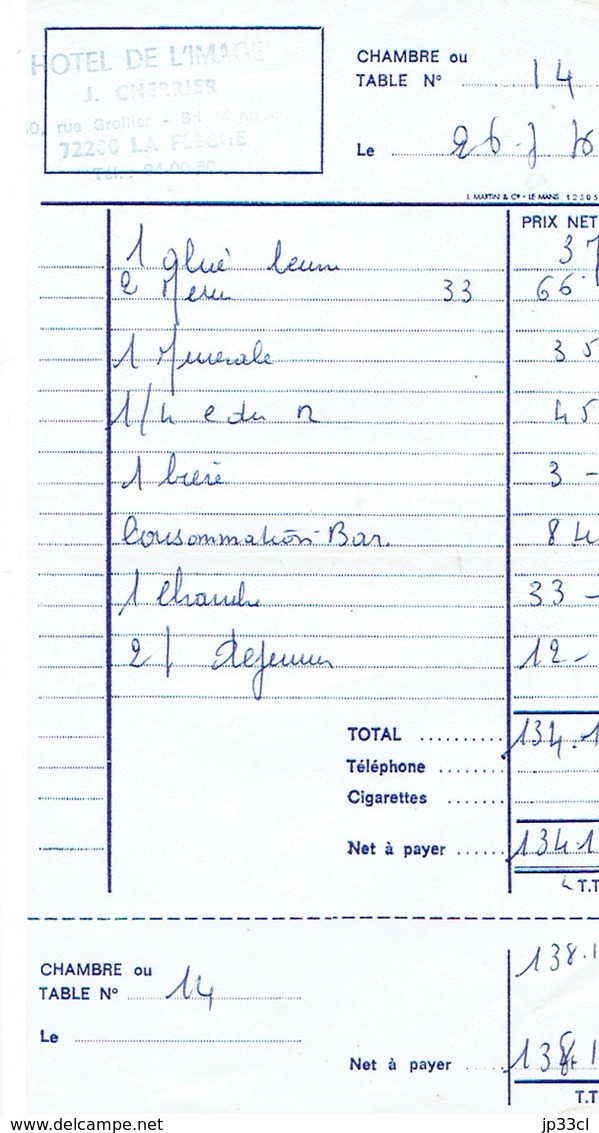 HOTEL DE L'IMAGE
J. CHERRIER
rue Grollier - Bd
72200 LA FLECHE
Tél. : 94-00-50
CHAMBRE ou
TABLE N° 14
Le 26. 7 76
J. MARTIN & Cie - LE MANS 12595
PRIX NET
1 37
2 Menu 33 66
1 Minerale 35
1/4 45
1 biere 3 -
Consommation Bar. 84
1 Chambre 33 -
2 / Dejeuner 12 -
TOTAL 134.1
Téléphone
Cigarettes
Net à payer 134.1
T.T
CHAMBRE ou
TABLE N° 14
Le
138.1
Net à payer
T.T
www.delcampe.net
jp33cl